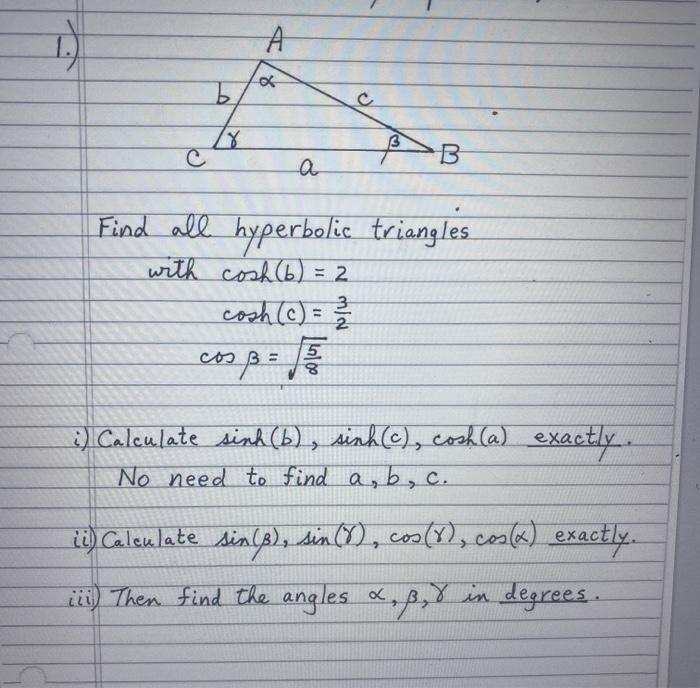 1.)
A
α
b
c
γ
β
C
B
a
Find all hyperbolic triangles
with cosh(b) = 2
cosh(c) = 3/2
cos β = √(5/8)
i) Calculate sinh(b), sinh(c), cosh(a) exactly.
No need to find a, b, c.
ii) Calculate sin(β), sin(γ), cos(γ), cos(α) exactly.
iii) Then find the angles α, β, γ in degrees.